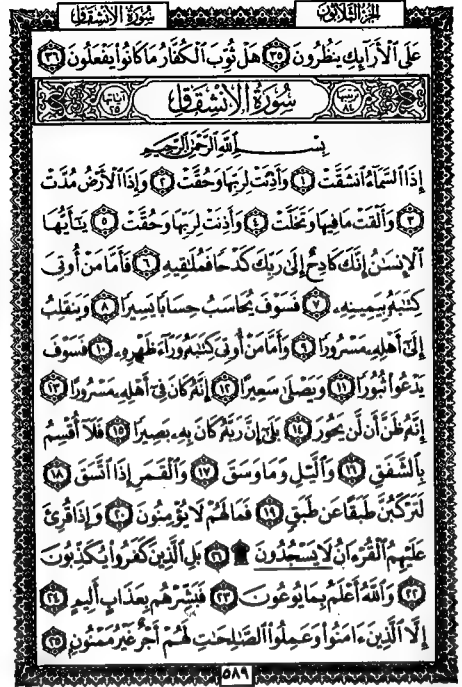 سُورَةُ الانشِقَاقِ الجُزْءُ الثَّلَاثُونَ
عَلَى ٱلْأَرَآئِكِ يَنظُرُونَ ٣٥ هَلْ ثُوِّبَ ٱلْكُفَّارُ مَا كَانُوا۟ يَفْعَلُونَ ٣٦
ترتيبها ٨٤ سُورَةُ الانشِقَاقِ آياتها ٢٥
بِسْمِ ٱللَّهِ ٱلرَّحْمَٰنِ ٱلرَّحِيمِ
إِذَا ٱلسَّمَآءُ ٱنشَقَّتْ ١ وَأَذِنَتْ لِرَبِّهَا وَحُقَّتْ ٢ وَإِذَا ٱلْأَرْضُ مُدَّتْ
٣ وَأَلْقَتْ مَا فِيهَا وَتَخَلَّتْ ٤ وَأَذِنَتْ لِرَبِّهَا وَحُقَّتْ ٥ يَٰٓأَيُّهَا
ٱلْإِنسَٰنُ إِنَّكَ كَادِحٌ إِلَىٰ رَبِّكَ كَدْحًا فَمُلَٰقِيهِ ٦ فَأَمَّا مَنْ أُوتِىَ
كِتَٰبَهُۥ بِيَمِينِهِۦ ٧ فَسَوْفَ يُحَاسَبُ حِسَابًا يَسِيرًا ٨ وَيَنقَلِبُ
إِلَىٰٓ أَهْلِهِۦ مَسْرُورًا ٩ وَأَمَّا مَنْ أُوتِىَ كِتَٰبَهُۥ وَرَآءَ ظَهْرِهِۦ ١٠ فَسَوْفَ
يَدْعُوا۟ ثُبُورًا ١١ وَيَصْلَىٰ سَعِيرًا ١٢ إِنَّهُۥ كَانَ فِىٓ أَهْلِهِۦ مَسْرُورًا ١٣
إِنَّهُۥ ظَنَّ أَن لَّن يَحُورَ ١٤ بَلَىٰٓ إِنَّ رَبَّهُۥ كَانَ بِهِۦ بَصِيرًا ١٥ فَلَآ أُقْسِمُ
بِٱلشَّفَقِ ١٦ وَٱلَّيْلِ وَمَا وَسَقَ ١٧ وَٱلْقَمَرِ إِذَا ٱتَّسَقَ ١٨
لَتَرْكَبُنَّ طَبَقًا عَن طَبَقٍ ١٩ فَمَا لَهُمْ لَا يُؤْمِنُونَ ٢٠ وَإِذَا قُرِئَ
عَلَيْهِمُ ٱلْقُرْءَانُ لَا يَسْجُدُونَ ۩ ٢١ بَلِ ٱلَّذِينَ كَفَرُوا۟ يُكَذِّبُونَ
٢٢ وَٱللَّهُ أَعْلَمُ بِمَا يُوعُونَ ٢٣ فَبَشِّرْهُم بِعَذَابٍ أَلِيمٍ ٢٤
إِلَّا ٱلَّذِينَ ءَامَنُوا۟ وَعَمِلُوا۟ ٱلصَّٰلِحَٰتِ لَهُمْ أَجْرٌ غَيْرُ مَمْنُونٍۭ ٢٥
٥٨٩